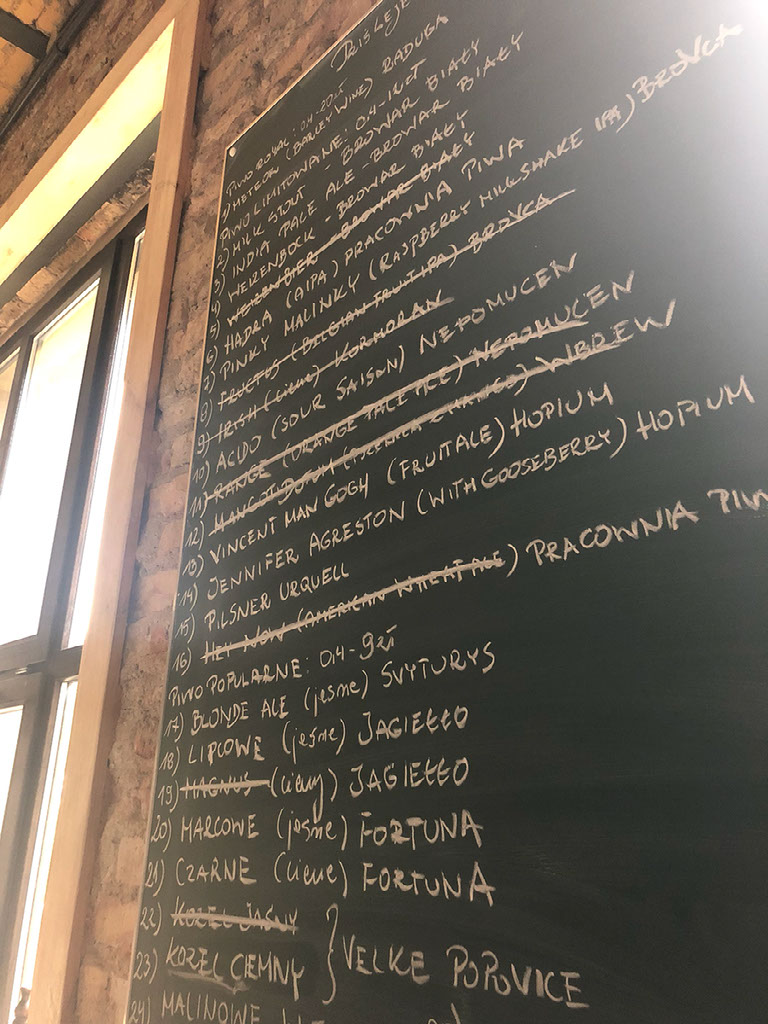 PIWO ROYAL: 0,4-20zł
1) METEOR (BARLEY WINE) RADUGA
PIWO LIMITOWANE: 0,4-12zł
2) MILK STOUT - BROWAR BIAŁY
3) INDIA PALE ALE - BROWAR BIAŁY
4) WEIZENBOCK - BROWAR BIAŁY
5) WEIZENBIER - BROWAR BIAŁY
6) HADRA (AIPA) PRACOWNIA PIWA
7) PINKY MALINKY (RASPBERRY MILKSHAKE IPA) BROVCA
8) FRUCTUS (BELGIAN FRUIT IPA) BROVCA
9) IRISH (ciemne) KORMORAN
10) ACIDO (SOUR SAISON) NEPOMUCEN
11) RANGE (ORANGE PALE ALE) NEPOMUCEN
12) WBREW
13) VINCENT MAN GOGH (FRUIT ALE) HOPIUM
14) JENNIFER AGRESTON (WITH GOOSEBERRY) HOPIUM
15) PILSNER URQUELL
16) HEY NOW (AMERICAN WHEAT ALE) PRACOWNIA
PIWO POPULARNE: 0,4-9zł
17) BLONDE ALE (jasne) SVYTURYS
18) LIPCOWE (jasne) JAGIEŁŁO
19) MAGNUS (ciemny) JAGIEŁŁO
20) MARCOWE (jasne) FORTUNA
21) CZARNE (ciemne) FORTUNA
22) KOZEL JASNY
23) KOZEL CIEMNY } VELKE POPOVICE
24) MALINOWE